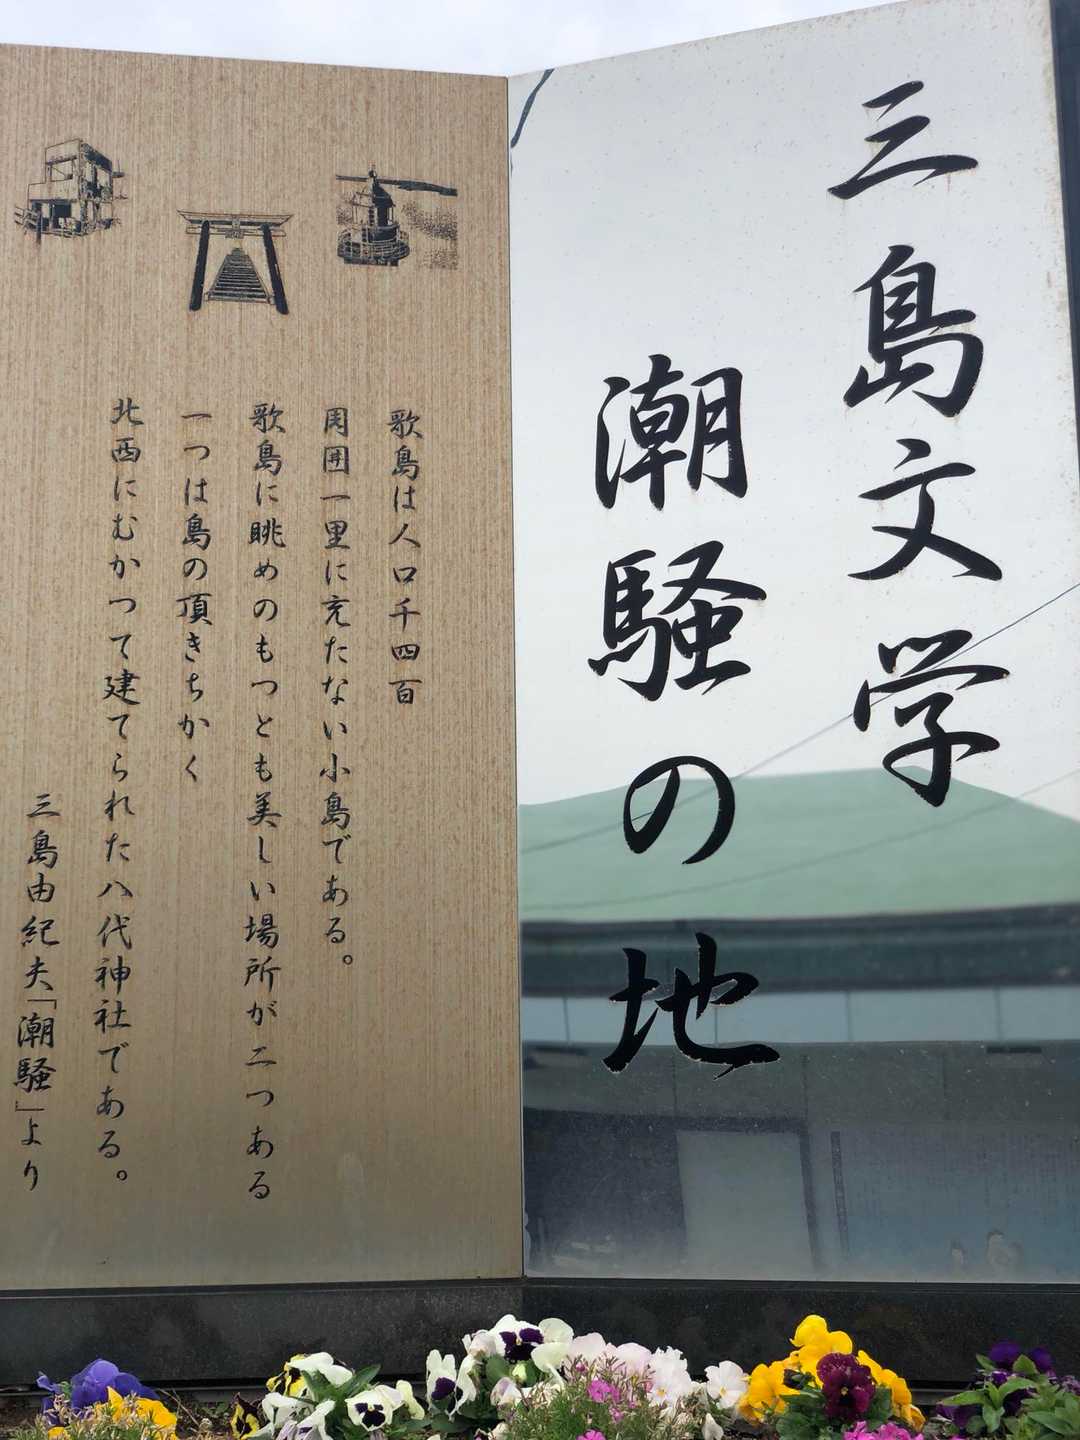 三島文学
潮騒の地
歌島は人口千四百
周囲一里に充たない小島である。
歌島に眺めのもつとも美しい場所が二つある
一つは島の頂きちかく
北西にむかつて建てられた八代神社である。
三島由紀夫「潮騒」より